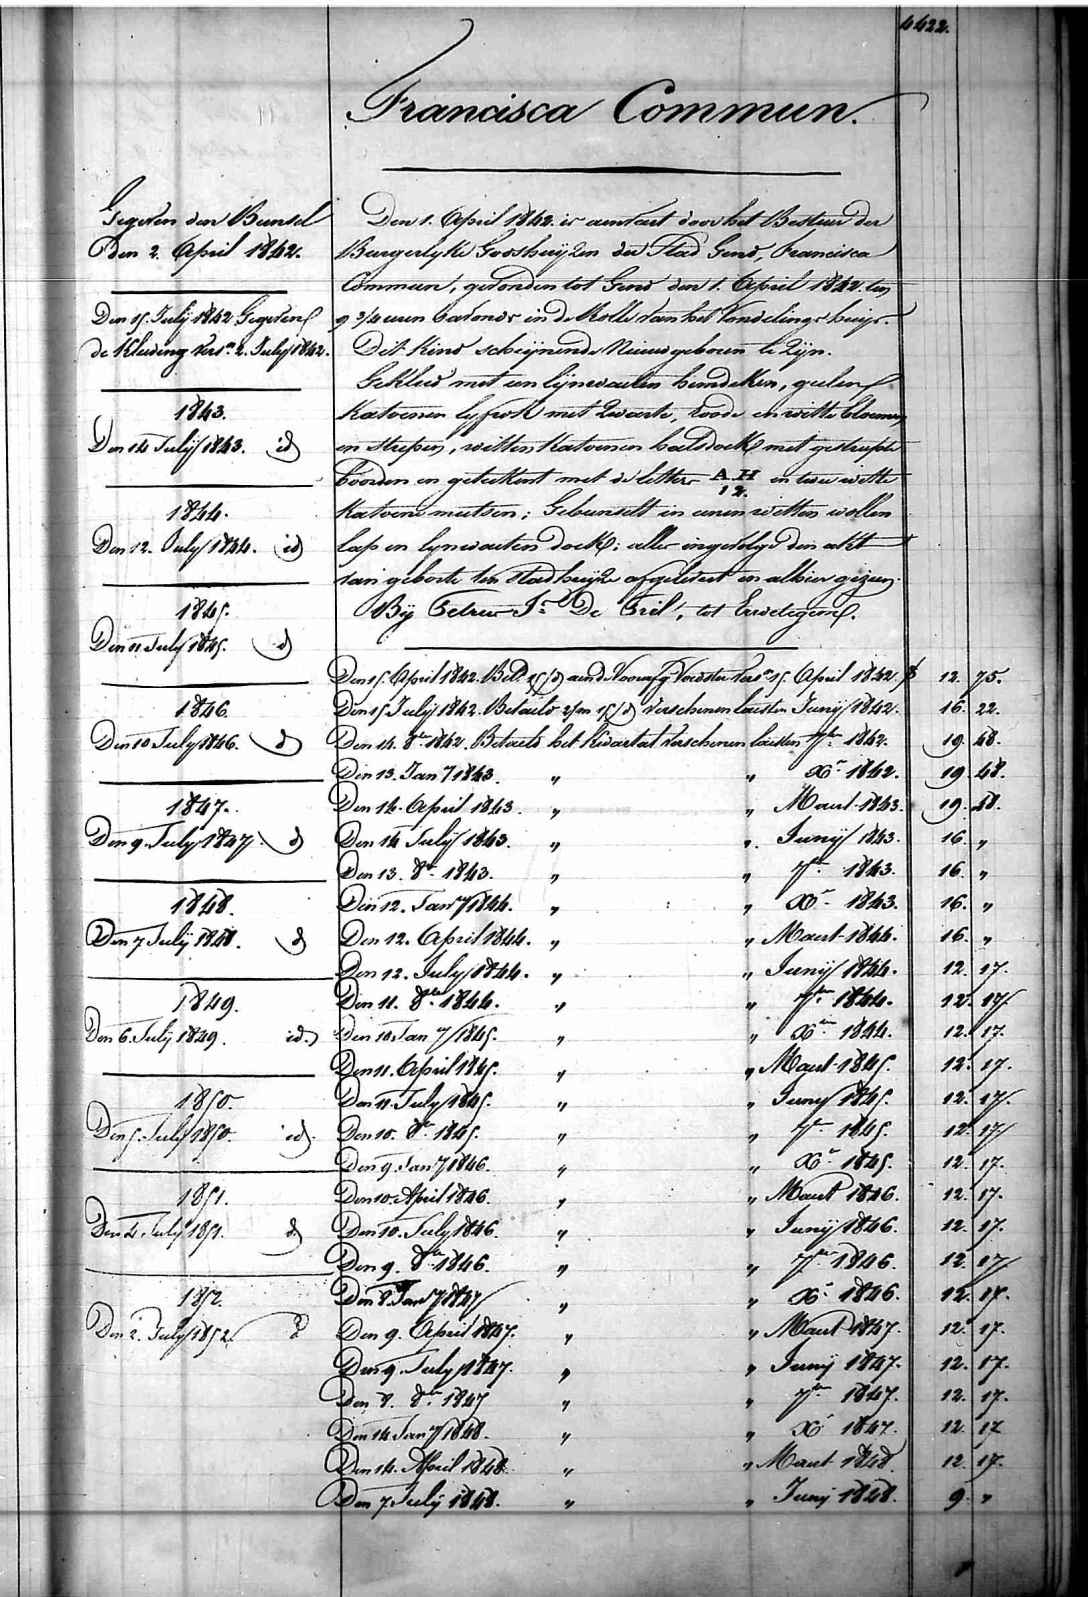 4422.
Francisca Commun.
Gegeven den Bunsel
den 2. April 1842.
Den 15. July 1842 Gegeven
de Kleeding vers.n 2. July 1842.
1843.
Den 14 July 1843. id
1844.
Den 12. July 1844. id
1845.
Den 11. July 1845. id
1846.
Den 10 July 1846. id
1847.
Den 9 July 1847. id
1848.
Den 7 July 1848. id
1849.
Den 6. July 1849. id.
1850.
Den 5. July 1850. id.
1851.
Den 4. July 1851. id
1852.
Den 2. July 1852. id
Den 1. April 1842. is aenveert door het Bestuur der
Burgerlyke Godshuijzen der Stad Gend, Francisca
Commun, gevonden tot Gend den 1. April 1842. ten
9 3/4 uren 's avonds in de Rolle van het Vondelings huijs.
Dit Kind schijnende Nieuwgeboren te zijn.
Gekleed met een lijnwaeten hemdeken, geelen
Katoenen lyfrok met zwarte, roode en witte bloemen
en strepen, witten Katoenen halsdoek met gestreepte
boorden en geteekent met de letters A H 12. en twee witte
Katoene mutsen; Gebunselt in eenen witten wollen
lap en lynwaeten doek: alles ingevolge den akt
van geboorte ten stadhuyze afgeleverd en alhier gezien.
Bij Petrus Jn De Pril, tot Erwetegem.
Den 15. April 1842. Bet. 15/d aen de Voorafg. Voedster vers.n 15. April 1842. 12. 75.
Den 15 July 1842. Betaeld 2/m 15/d verschenen lactsten Juny 1842. 16. 22.
Den 14. 8bre 1842. Betaeld het Kwartael verschenen lactsten 7bre 1842. 19. 48.
Den 13. Jany 1843. " " Xr 1842. 19. 48.
Den 14. April 1843. " " Maert 1843. 19. 48.
Den 14 July 1843. " " Juny 1843. 16. "
Den 13. 8r 1843. " " 7r 1843. 16. "
Den 12. Jany 1844. " " Xr 1843. 16. "
Den 12. April 1844. " " Maert 1844. 16. "
Den 12. July 1844. " " Juny 1844. 12. 17.
Den 11. 8bre 1844. " " 7bre 1844. 12. 17.
Den 10. Jany 1845. " " Xbre 1844. 12. 17.
Den 11. April 1845. " " Maert 1845. 12. 17.
Den 11. July 1845. " " Juny 1845. 12. 17.
Den 10. 8r 1845. " " 7r 1845. 12. 17
Den 9. Jany 1846. " " Xr 1845. 12. 17.
Den 10. April 1846. " " Maert 1846. 12. 17.
Den 10. July 1846. " " Juny 1846. 12. 17.
Den 9. 8bre 1846. " " 7bre 1846. 12. 17
Den 8. Jany 1847 " " Xr 1846. 12. 17.
Den 9. April 1847. " " Maert 1847. 12. 17.
Den 9. July 1847. " " Juny 1847. 12. 17.
Den 8. 8r 1847 " " 7bre 1847. 12. 17.
Den 14 Jany 1848. " " Xr 1847. 12. 17
Den 14. April 1848. " " Maert 1848 12. 17.
Den 7 July 1848. " " Juny 1848. 9 "